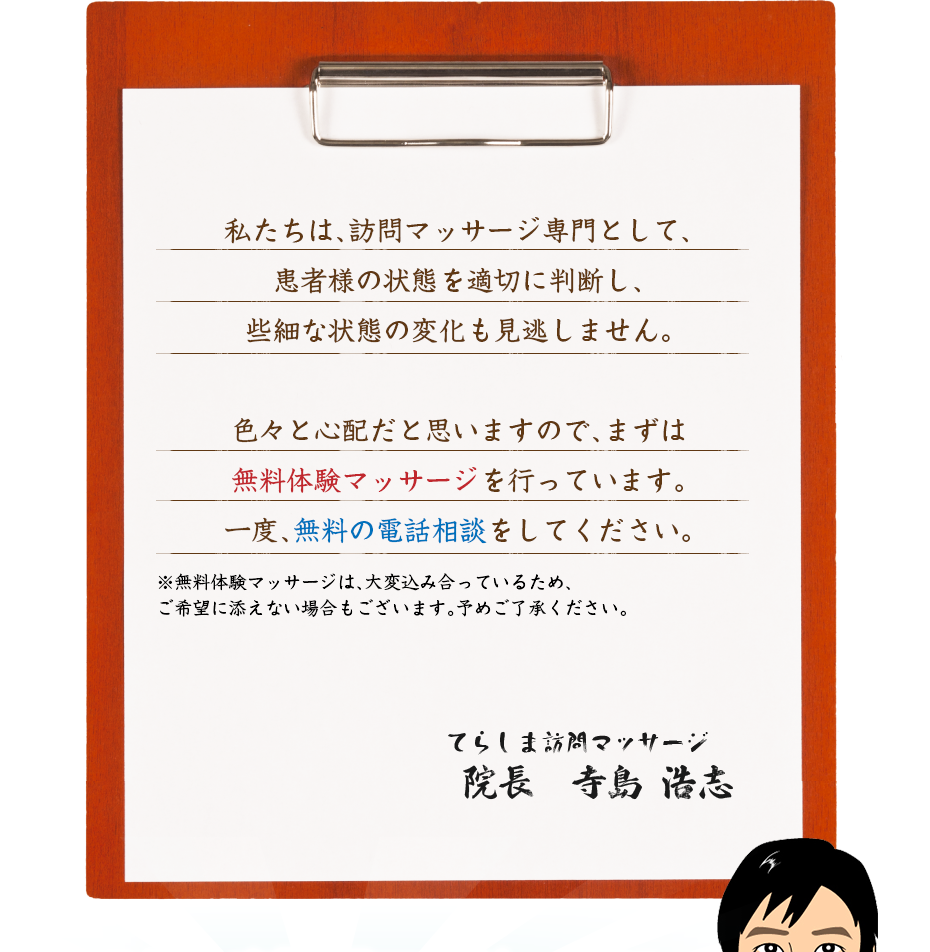 私たちは、訪問マッサージ専門として、
患者様の状態を適切に判断し、
些細な状態の変化も見逃しません。
色々と心配だと思いますので、まずは
無料体験マッサージを行っています。
一度、無料の電話相談をしてください。
※無料体験マッサージは、大変込み合っているため、
ご希望に添えない場合もございます。予めご了承ください。
てらしま訪問マッサージ
院長　寺島 浩志